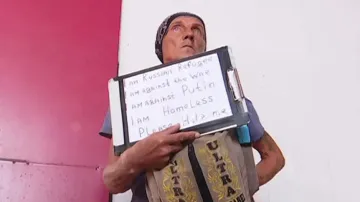 I am Russian Refugee
I am against the War
I am against Putin
I am HomeLess
Please help me
ULTRA
ULTRA